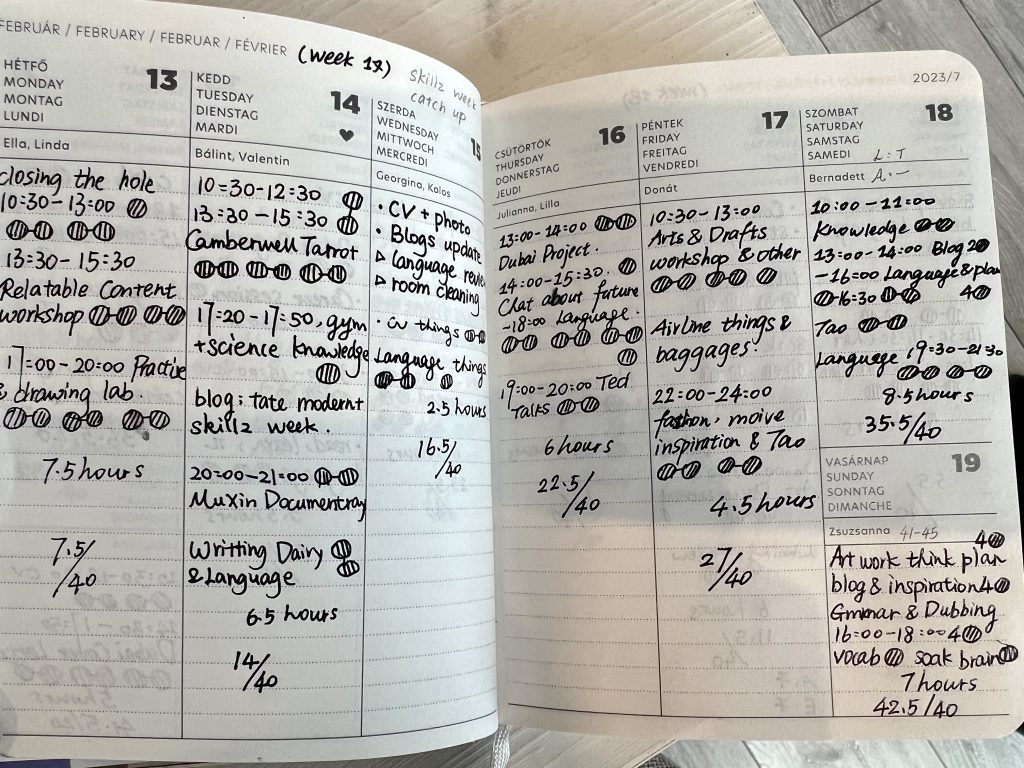 FEBRUÁR / FEBRUARY / FEBRUAR / FÉVRIER (week 17)
skillz week
catch up
HÉTFŐ
MONDAY
MONTAG
LUNDI
13
Ella, Linda
closing the hole
10:30-13:00
13:30-15:30
Relatable Content
workshop
17:00-20:00 Practice
& drawing lab.
7.5 hours
7.5/
/40
KEDD
TUESDAY
DIENSTAG
MARDI
14
Bálint, Valentin
10=30-12=30
13=30-15=30
Camberwell Tarrot
17=20-17=50, gym
+science knowledge
blog; tate modern+
skillz week.
20=00-21=00
Muxin Documentray
Writting Dairy
& Language
6.5 hours
14/
/40
SZERDA
WEDNESDAY
MITTWOCH
MERCREDI
15
Georgina, Kolos
• CV + photo
• Blogs update
▷ language review
▷ room cleaning
• CV things
Language things
2.5 hours
16.5/
/40
2023/7
CSÜTÖRTÖK
THURSDAY
DONNERSTAG
JEUDI
16
Julianna, Lilla
13=00-14=00
Dubai Project.
14=00-15=30.
Chat about future
-18=00 Language.
19=00-20=00 Ted
Talks
6 hours
22.5/
/40
PÉNTEK
FRIDAY
FREITAG
VENDREDI
17
Donát
10=30-13=00
Arts & Drafts
workshop & other
Airline things &
baggages.
22=00-24=00
fashon, moive
inspiration & Tao
4.5 hours
27/
/40
SZOMBAT
SATURDAY
SAMSTAG
SAMEDI
18
L:T
Bernadett A:-
10:00-11=00
Knowledge
13=00-14=00 Blog 2
-16=00 Language & plan
-16=30 4
Tao
Language 19=30-21=30
8.5 hours
35.5/
/40
VASÁRNAP
SUNDAY
SONNTAG
DIMANCHE
19
Zsuzsanna 41-45
4
Art work think plan
blog & inspiration 4
Gmmar & Dubbing
16=00-18=00 4
vocab soak brain
7 hours
42.5/40